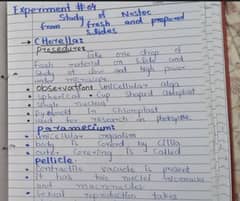 Experiment #04
Study of Nostoc
from fresh and prepared
slides
Chlorella:
Procedure:
Take one drop of
fresh material on slide and
study at slow and high power
under microscope.
Observations: Unicellular alga
Spherical Cup shaped chloroplast
single nucleus
pyrenoid in chloroplast
used for research in photosynthe
Paramecium:
unicellular organism
body is covered by cilia
outer covering is called
Pellicle.
Contractile vacuole is present
it has two nuclei
and macronucleus
sexual reproduction takes